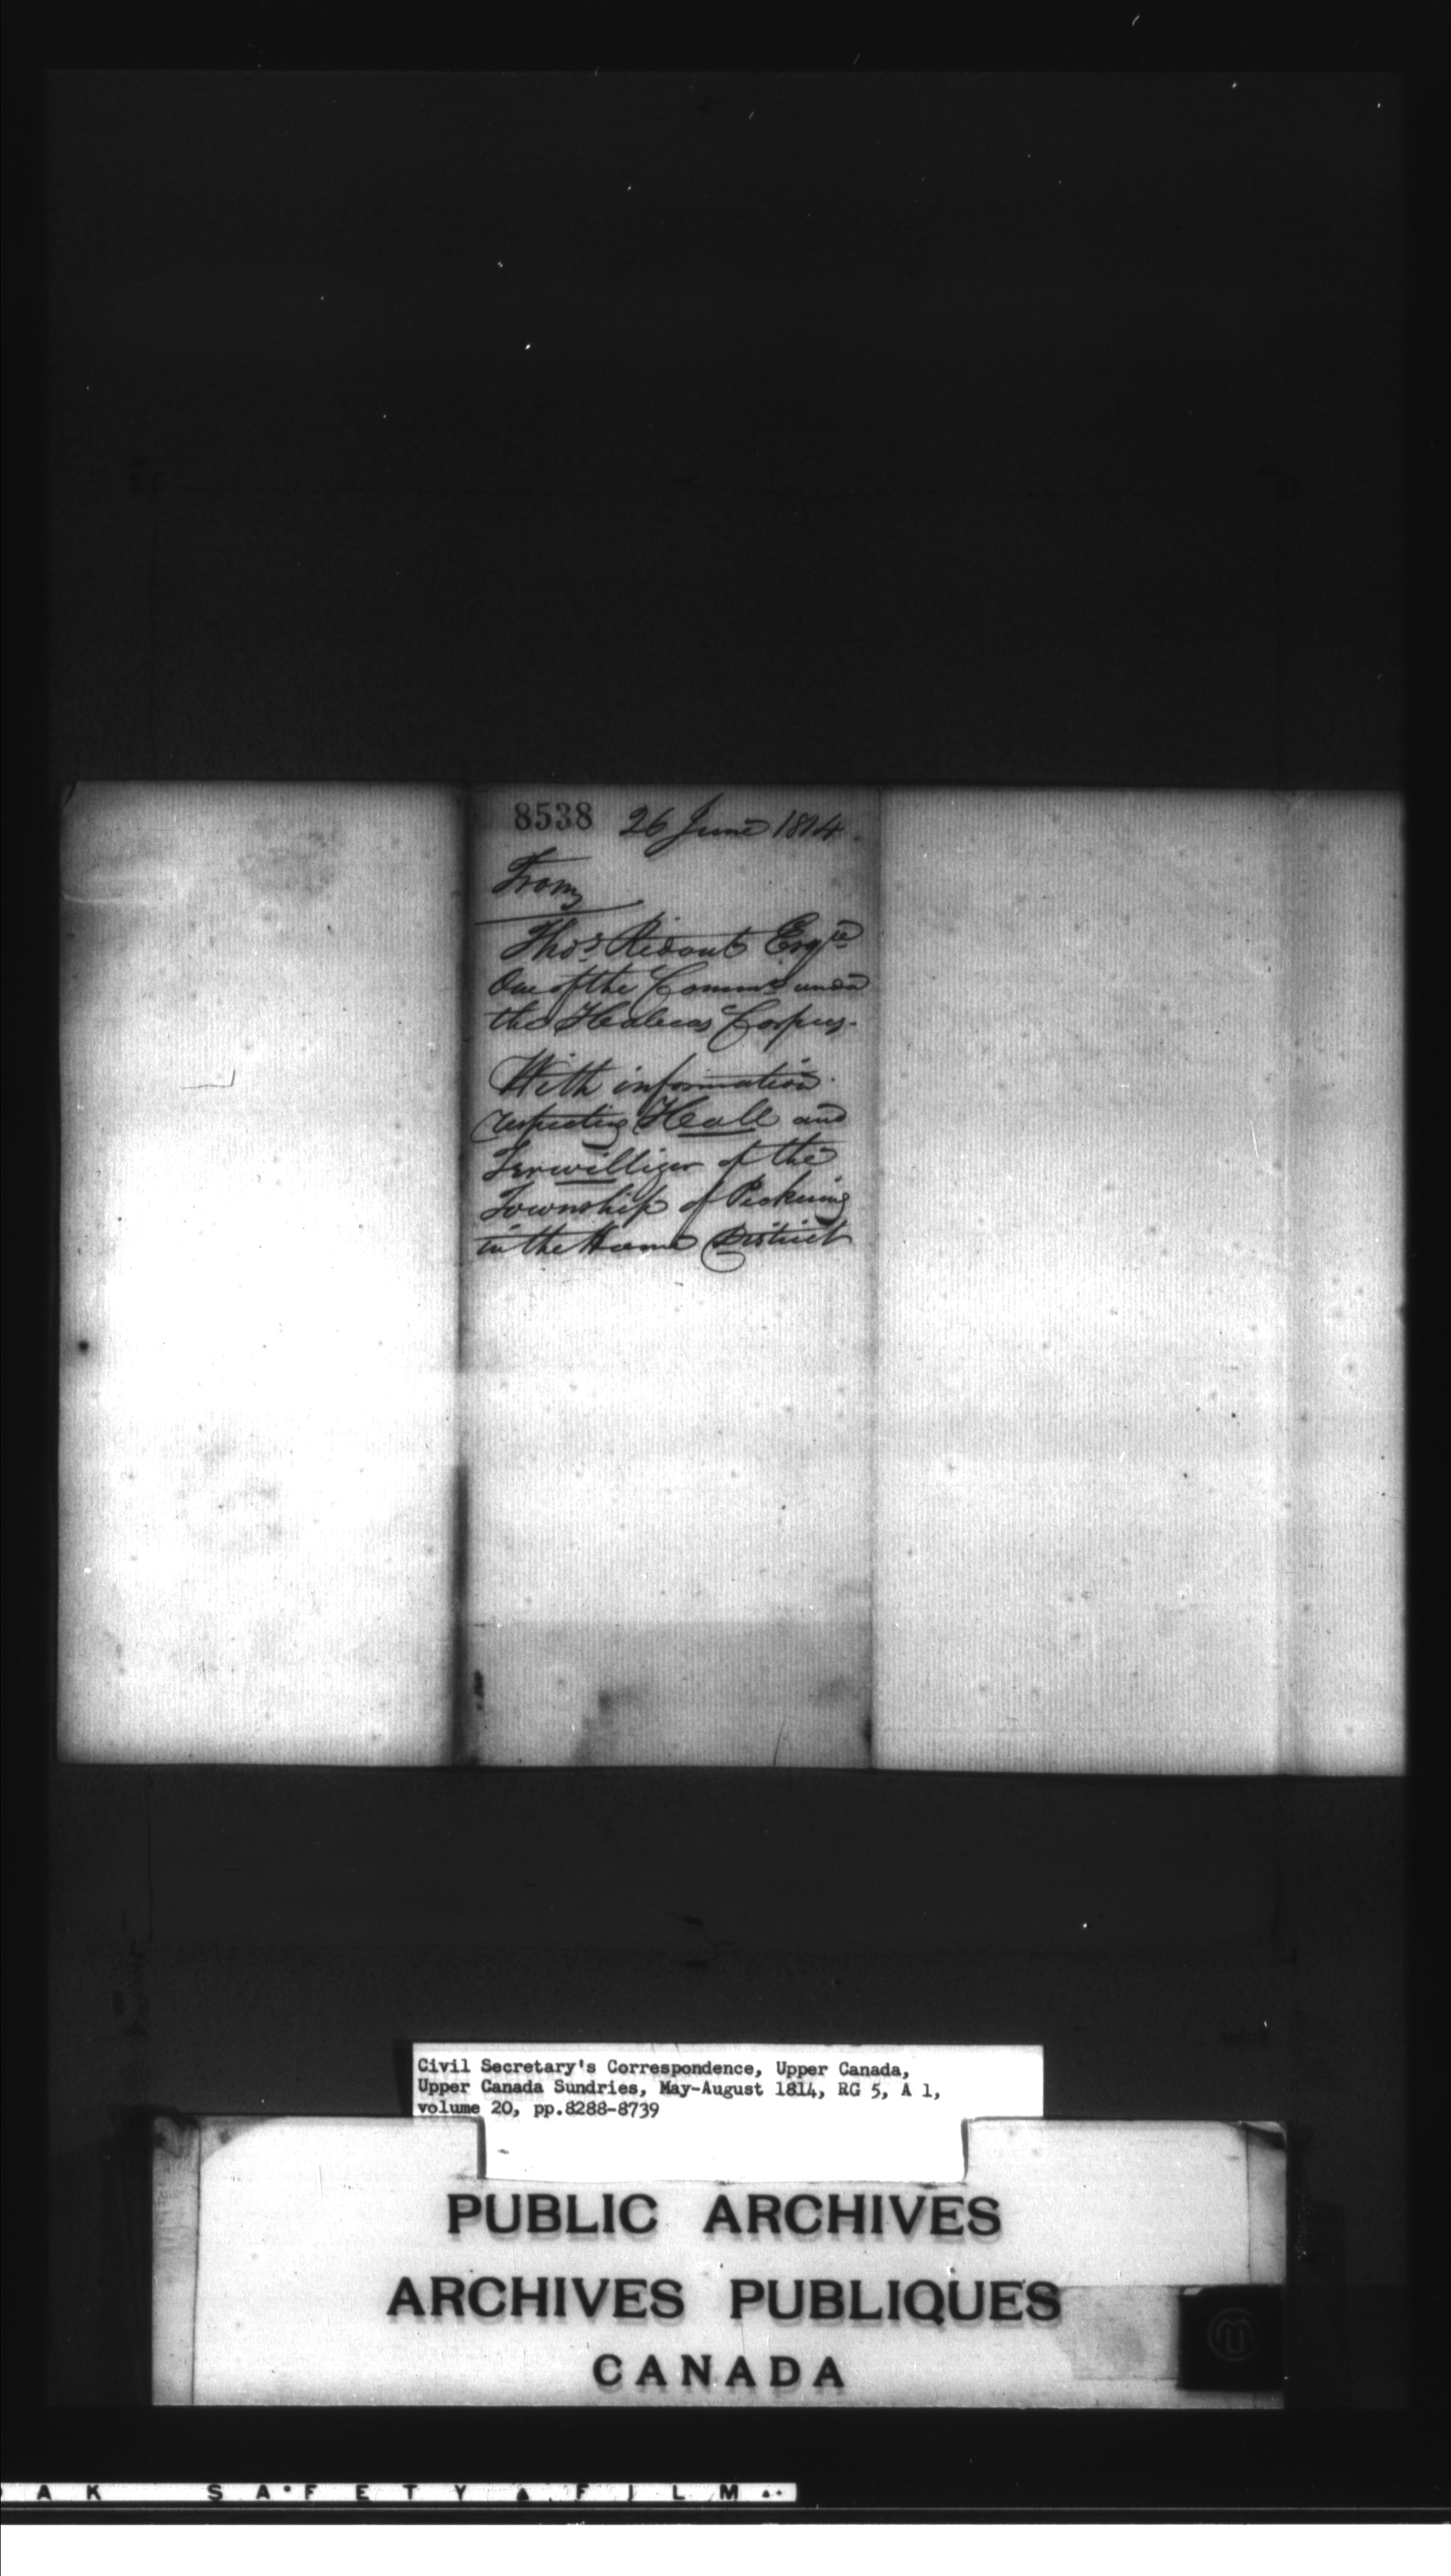 8538 26 June 1814.
From
Thos Ridout Esqre
One of the Commrs under
the Habeas Corpus.
With information
respecting Hall and
Terwilliger of the
Township of Pickering
in the Home District
Civil Secretary's Correspondence, Upper Canada,
Upper Canada Sundries, May-August 1814, RG 5, A 1,
volume 20, pp.8288-8739
PUBLIC ARCHIVES
ARCHIVES PUBLIQUES
CANADA
AK SAFETY FILM